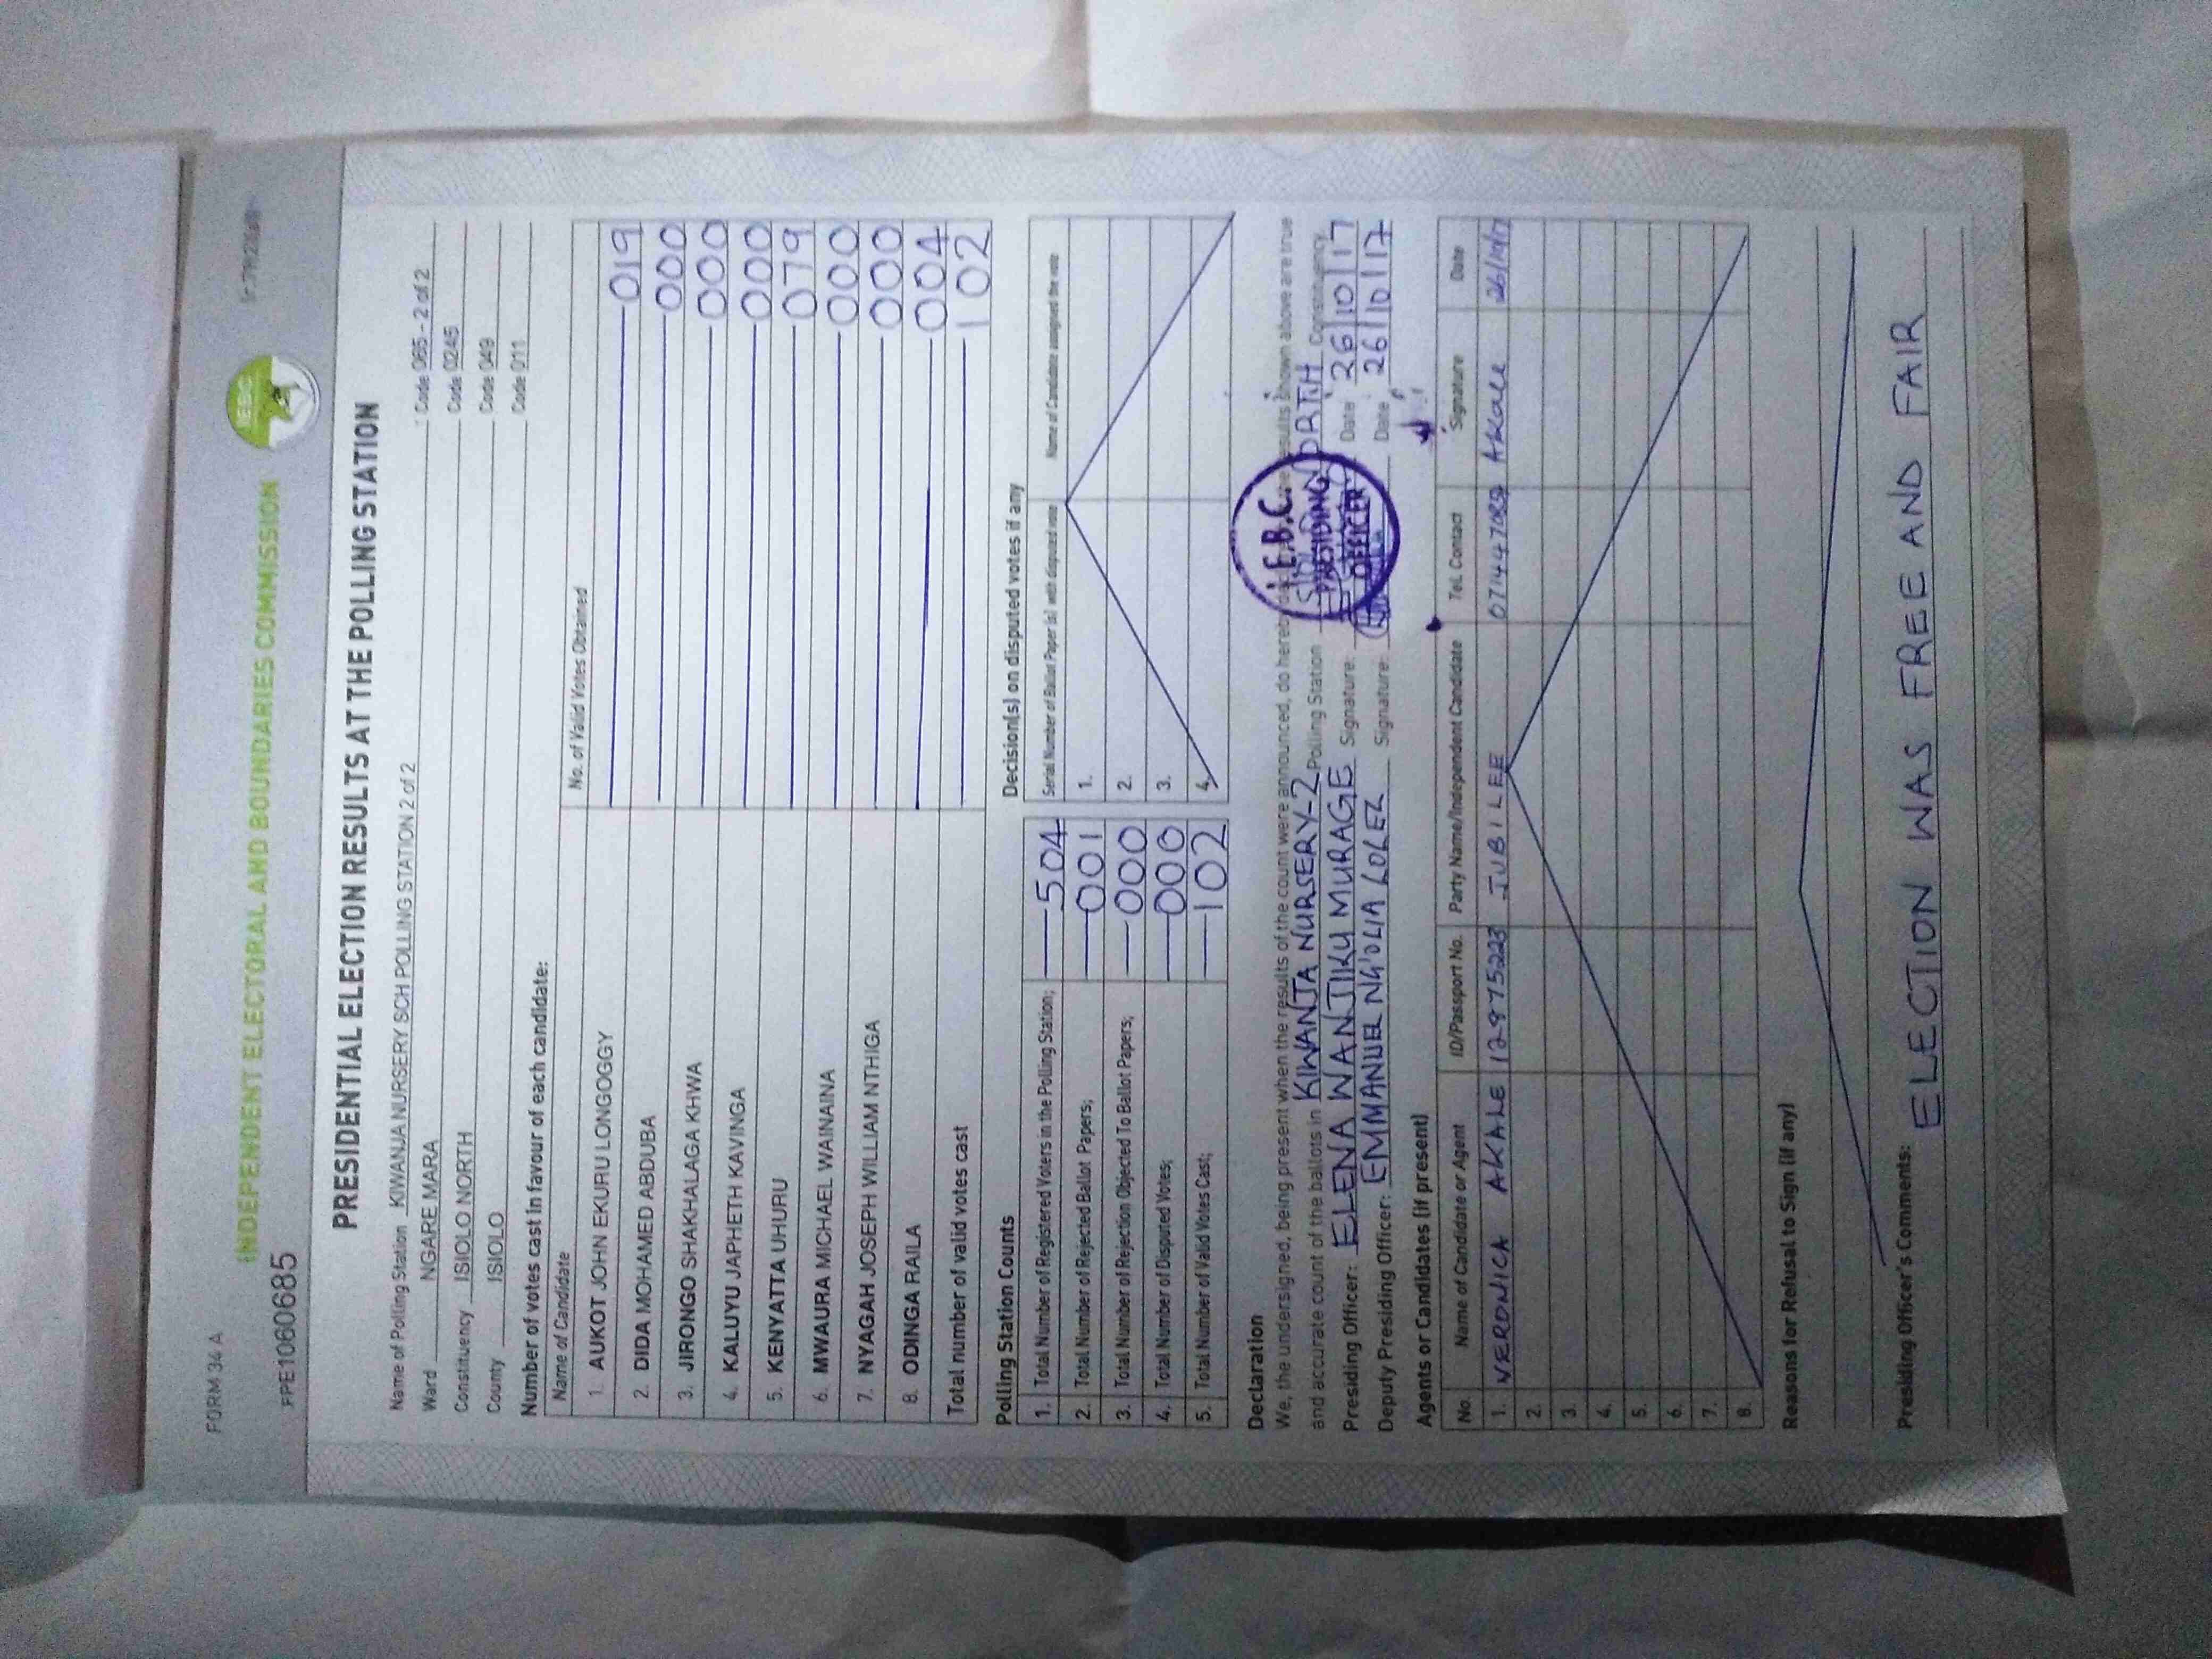 FORM 34 A
INDEPENDENT ELECTORAL AND BOUNDARIES COMMISSION
IEBC
FPE1060685
PRESIDENTIAL ELECTION RESULTS AT THE POLLING STATION
Name of Polling Station KIWANJA NURSERY SCH POLLING STATION 2 of 2 Code 065 - 2 of 2
Ward NGARE MARA Code 0245
Constituency ISIOLO NORTH Code 049
County ISIOLO Code 011
Number of votes cast in favour of each candidate:
Name of Candidate No. of Valid Votes Obtained
1. AUKOT JOHN EKURU LONGOGGY 019
2. DIDA MOHAMED ABDUBA 000
3. JIRONGO SHAKHALAGA KHWA 000
4. KALUYU JAPHETH KAVINGA 000
5. KENYATTA UHURU 079
6. MWAURA MICHAEL WAINAINA 000
7. NYAGAH JOSEPH WILLIAM NTHIGA 000
8. ODINGA RAILA 004
Total number of valid votes cast 102
Polling Station Counts
1. Total Number of Registered Voters in the Polling Station; 504
2. Total Number of Rejected Ballot Papers; 001
3. Total Number of Rejection Objected To Ballot Papers; 000
4. Total Number of Disputed Votes; 000
5. Total Number of Valid Votes Cast; 102
Decision(s) on disputed votes if any
Serial Number of Ballot Paper (s) with disputed vote Name of Candidate assigned the vote
1.
2.
3.
4.
Declaration
We, the undersigned, being present when the results of the count were announced, do hereby results shown above are true
and accurate count of the ballots in KIWANJA NURSERY-2 Polling Station NORTH Constituency.
Presiding Officer: ELENA WANJIKU MURAGE Signature: Date 26/10/17
Deputy Presiding Officer: EMMANUEL NG'OLIA LOLEZ Signature: Date 26/10/17
I.E.B.C.
PRESIDING
OFFICER
Agents or Candidates (if present)
No. Name of Candidate or Agent ID/Passport No. Party Name/Independent Candidate Tel. Contact Signature Date
1. VERONICA AKALE 12975223 JUBILEE 0714447089 Akale 26/10/17
2.
3.
4.
5.
6.
7.
8.
Reasons for Refusal to Sign (if any)
Presiding Officer's Comments:
ELECTION WAS FREE AND FAIR